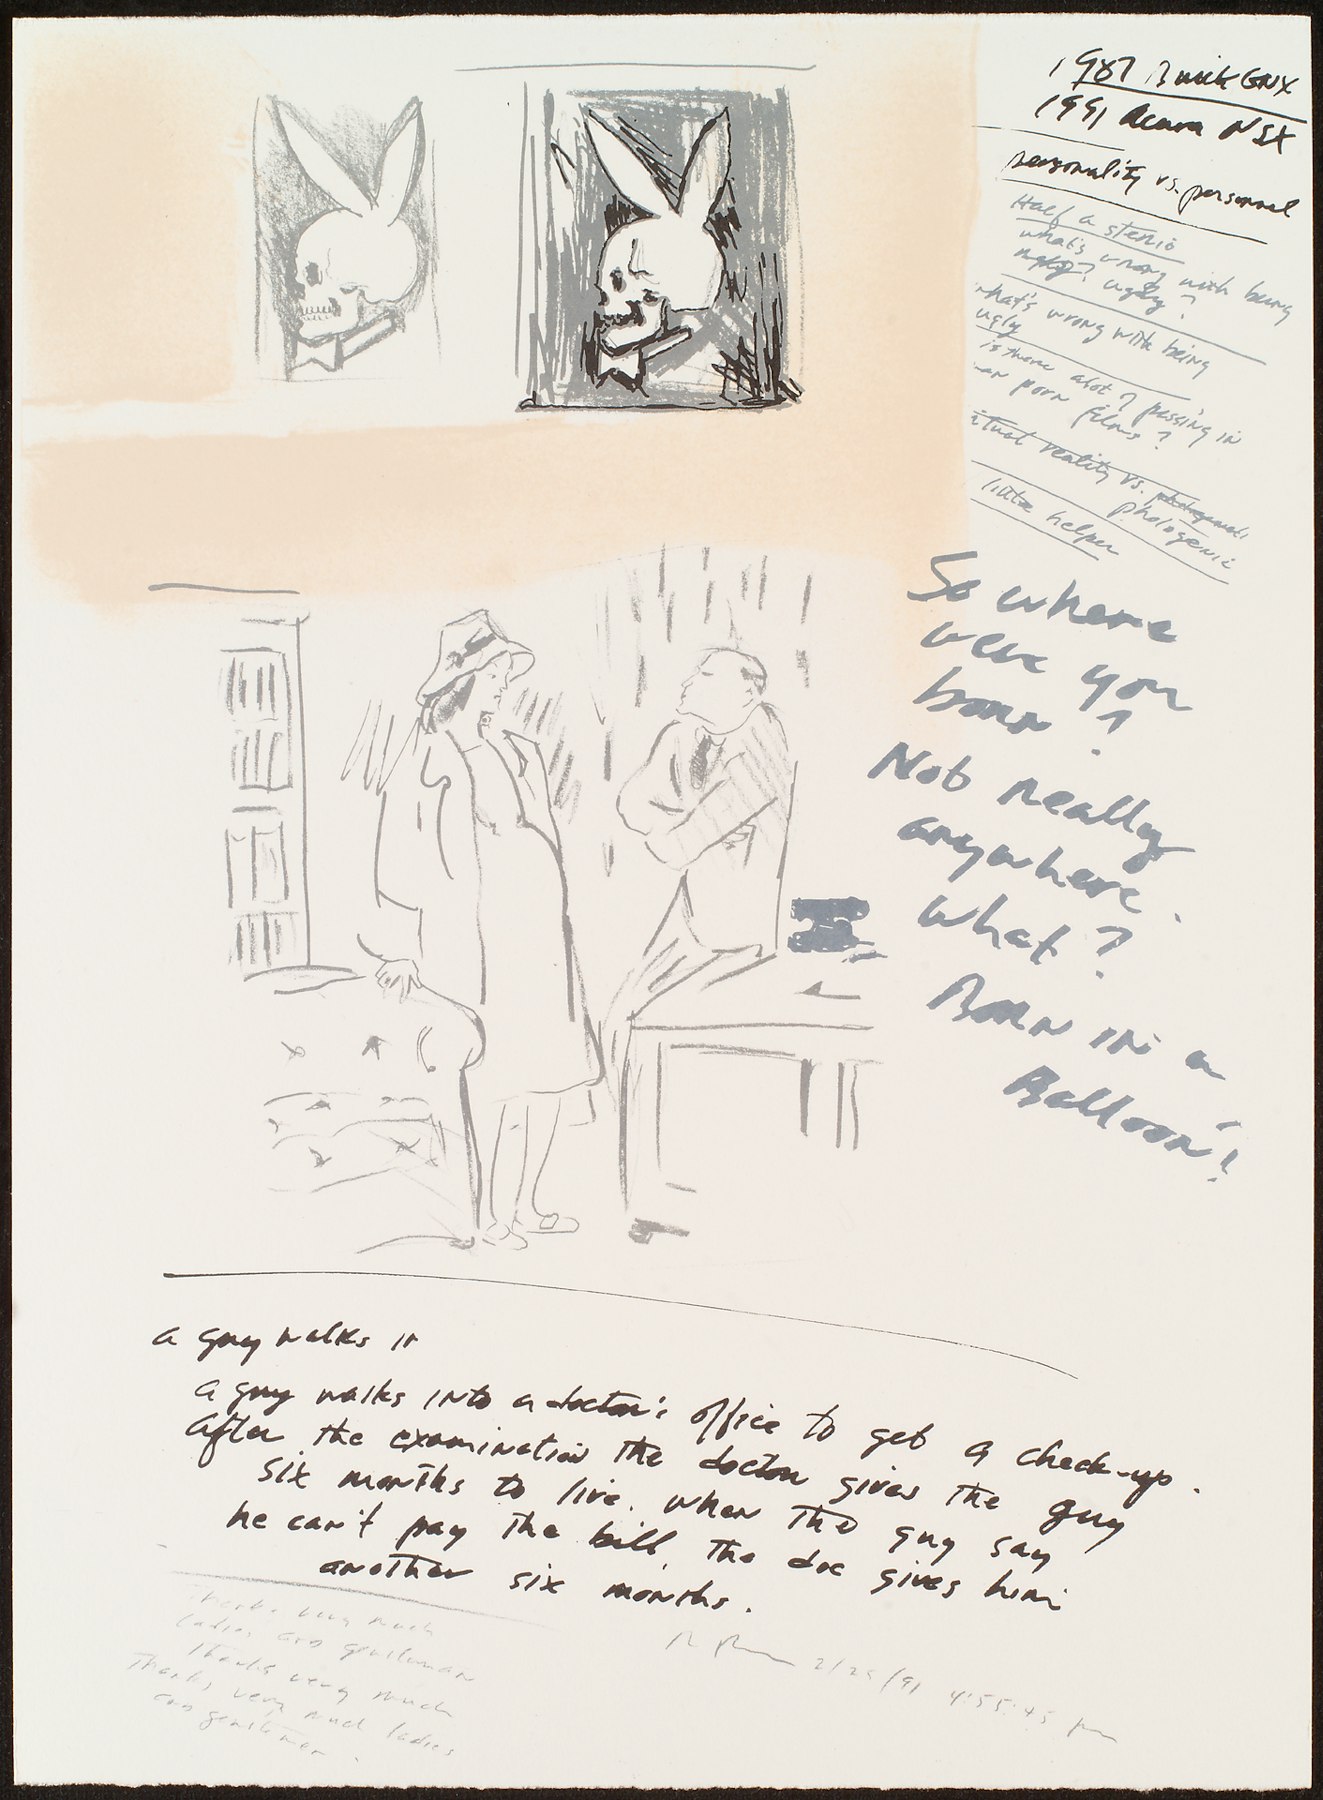 1987 Buick GNX
1991 Acura NSX
personality vs. personnel
Half a stenio
what's wrong with being
ugly? ugly?
what's wrong with being
ugly
is there alot of passing in
porn films?
reality vs.
photogenic
little helper
So where
were you
born?
Not really
anywhere.
what?
Born in a
Balloon?
a guy walks in
a guy walks into a doctor's office to get a check-up.
After the examination the doctor gives the guy
six months to live. when the guy say
he can't pay the bill, the doc gives him
another six months.
Thanks very much
ladies and gentleman
Thanks very much
Thanks very much ladies
and gentleman.
2/25/91 4:55:45 pm